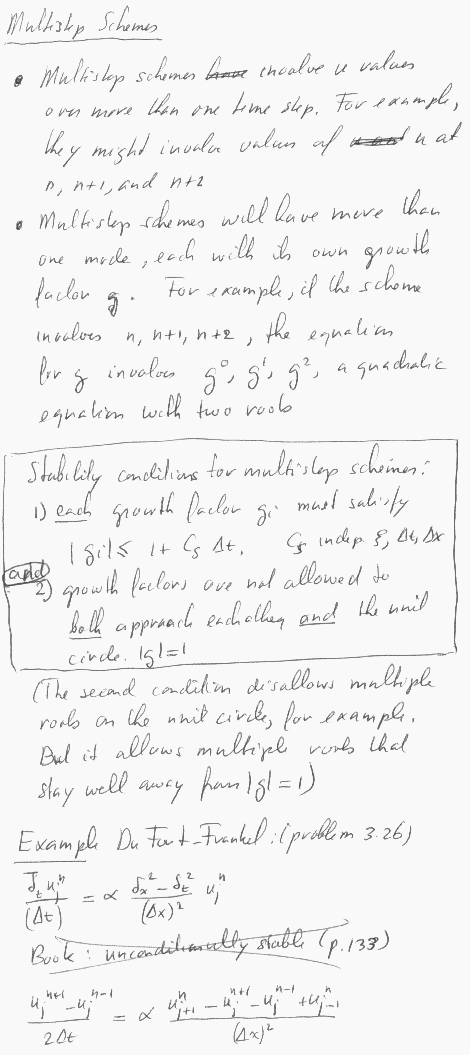 Multistep Schemes
• Multistep schemes have involve u values
over more than one time step. For example,
they might involve values of u and u at
n, n+1, and n+2
• Multistep schemes will have more than
one mode, each with its own growth
factor g. For example, if the scheme
involves n, n+1, n+2, the equation
for g involves g⁰, g¹, g², a quadratic
equation with two roots
Stability conditions for multistep schemes:
1) each growth factor gᵢ must satisfy
|gᵢ| ≤ 1 + Cₛ Δt. Cₛ indep. ξ, Δt, Δx
and
2) growth factors are not allowed to
both approach each other and the unit
circle. |g|=1
(The second condition disallows multiple
roots on the unit circle, for example.
But it allows multiple roots that
stay well away from |g|=1)
Example Du Fort-Frankel: (problem 3.26)
δ̄ₜ uⱼⁿ / (Δt) = α (δₓ² − δₜ²) / (Δx)² uⱼⁿ
Book: unconditionally stable (p.133)
(uⱼⁿ⁺¹ − uⱼⁿ⁻¹) / 2Δt = α (uⱼ₊₁ⁿ − uⱼⁿ⁺¹ − uⱼⁿ⁻¹ + uⱼ₋₁ⁿ) / (Δx)²